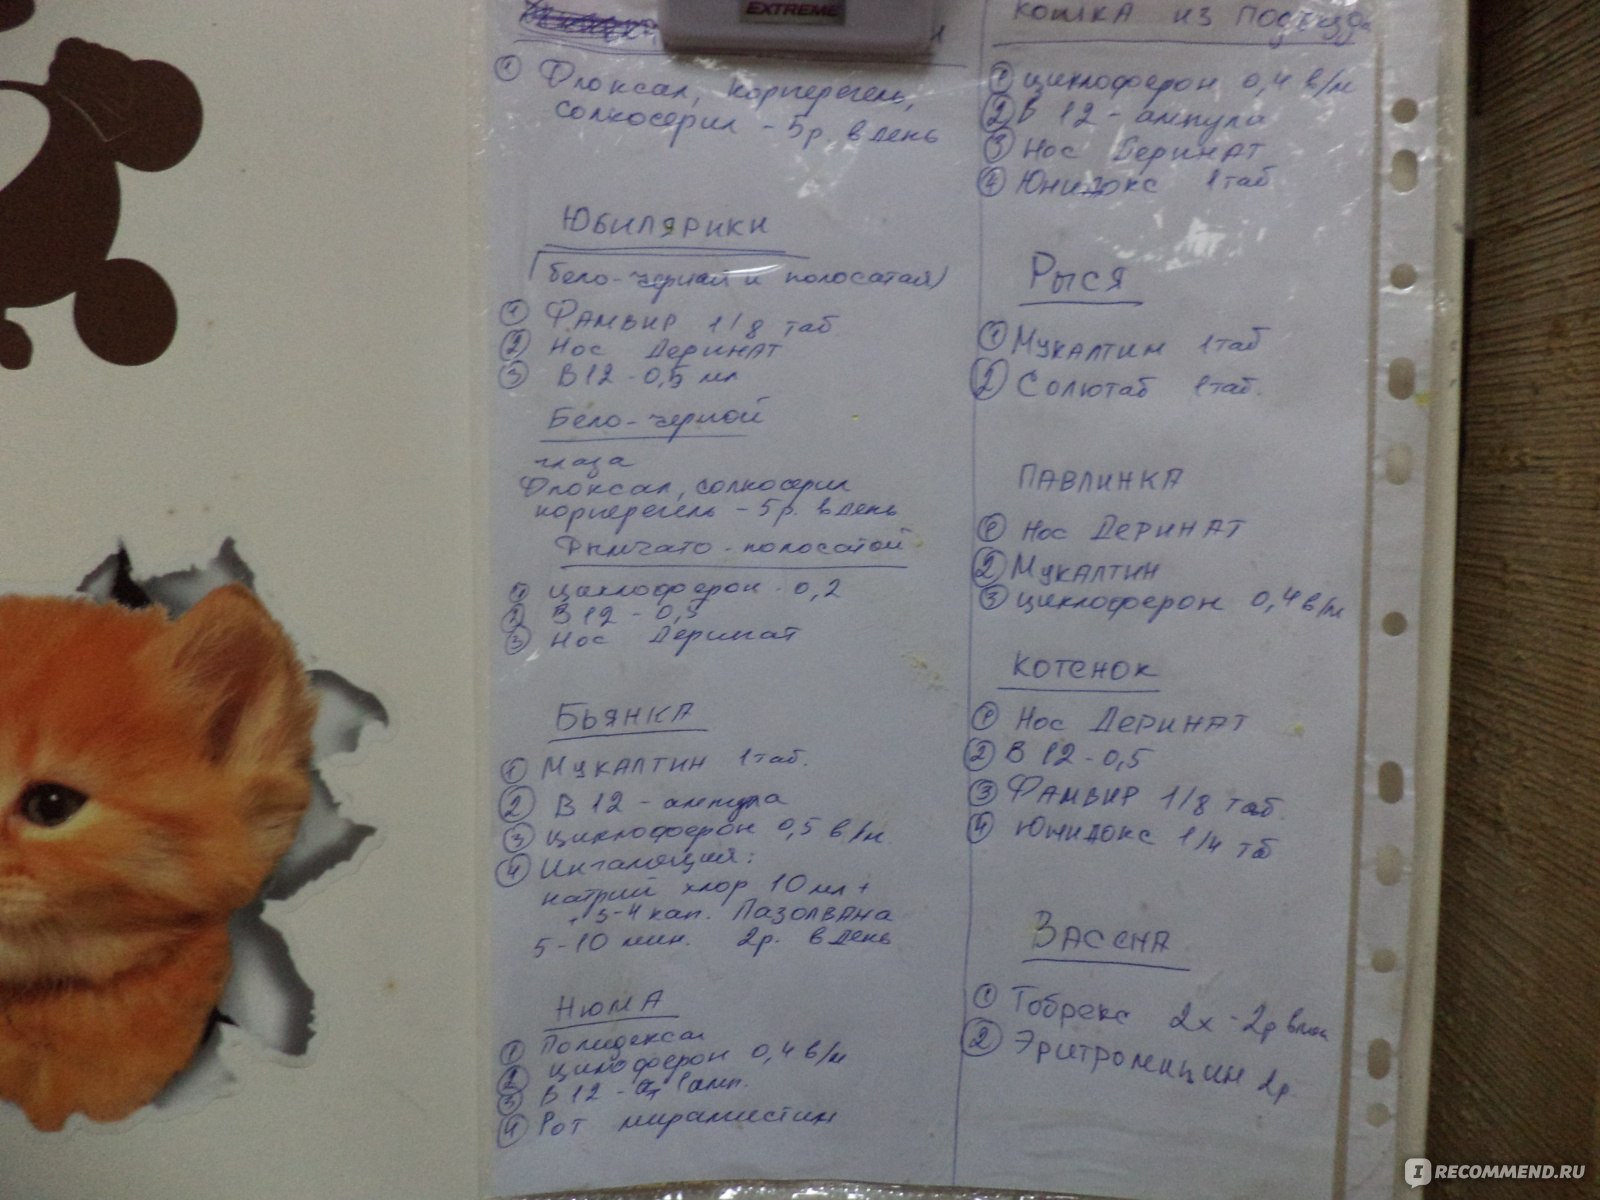 EXTREME
① Флоксал, корнерегель,
солкосерил - 5р. в день
ЮБИЛЯРИКИ
(бело-черная и полосатая)
① ФАМВИР 1/8 таб
② Нос Деринат
③ В12 - 0,5 мл
Бело-черной
глаза
Флоксал, солкосерил
корнерегель - 5р. в день
Дымчато-полосатой
① циклоферон - 0,2
② В12 - 0,5
③ Нос Деринат
БЬЯНКА
① МУКАЛТИН 1таб.
② В12 - ампула
③ циклоферон 0,5 в/м
④ Ингаляций:
натрий хлор 10мл +
+ 3-4 кап. Лазолвана
5-10 мин. 2р. в день
НЮМА
① Полидекса
② циклоферон 0,4 в/м
③ В12 - 1амп.
④ Рот мирамистин
КОШКА ИЗ ПОДЪЕЗДА
① циклоферон 0,4 в/м
② В 12 - ампула
③ Нос Деринат
④ Юнидокс 1таб
РЫСЯ
① Мукалтин 1таб
② Солютаб 1таб.
ПАВЛИНКА
① Нос Деринат
② Мукалтин
③ циклоферон 0,4 в/м
КОТЕНОК
① Нос Деринат
② В 12 - 0,5
③ ФАМВИР 1/8 таб.
④ Юнидокс 1/4 таб
ВАССНА
① Тобрекс 2х - 2р
② Эритромицин 2р.
IRECOMMEND.RU